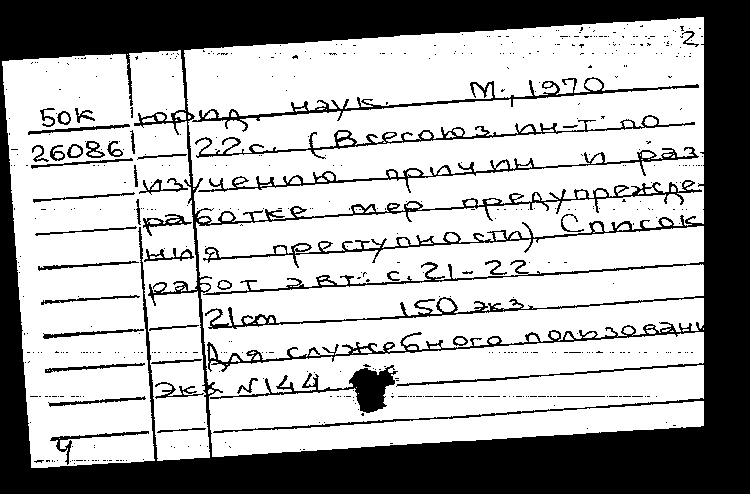 2
50к юрид. наук. М., 1970
26086 22с. (Всесоюз. ин-т по
изучению причин и раз-
работке мер предупрежде-
ния преступности). Список
работ авт.: с. 21-22.
21cm 150 экз.
Для служебного пользовани
экз N144.
4